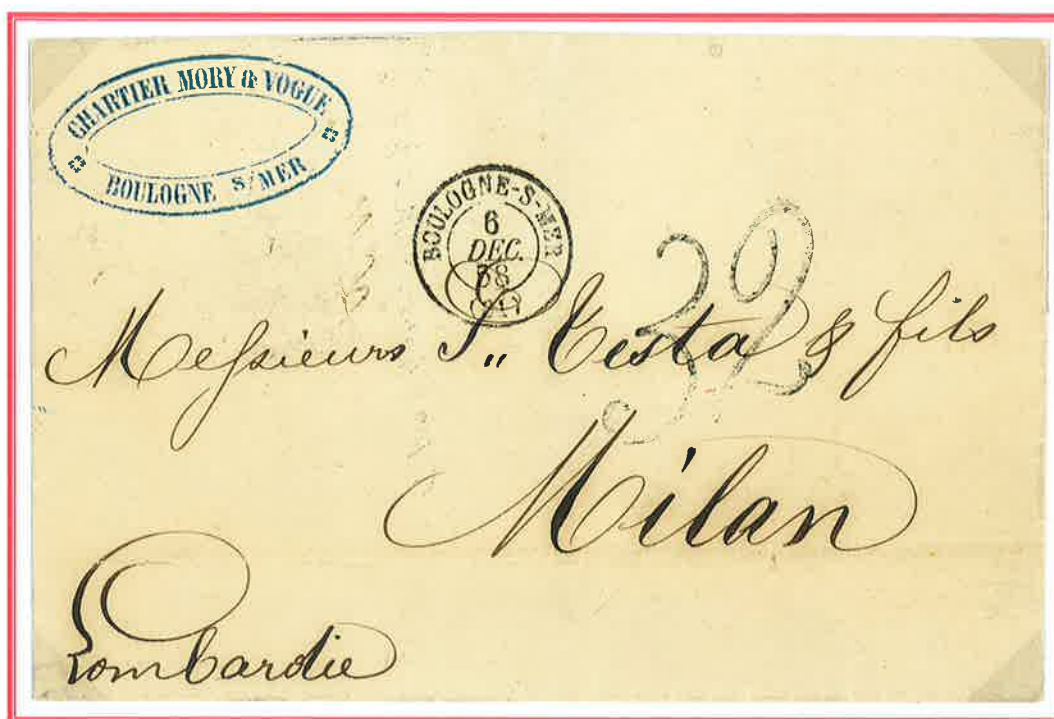 CHARTIER MORY & VOGUE
BOULOGNE S/MER
BOULOGNE-S-MER
6
DEC.
58
32
Messieurs J„ Testa & fils
Milan
Lombardie